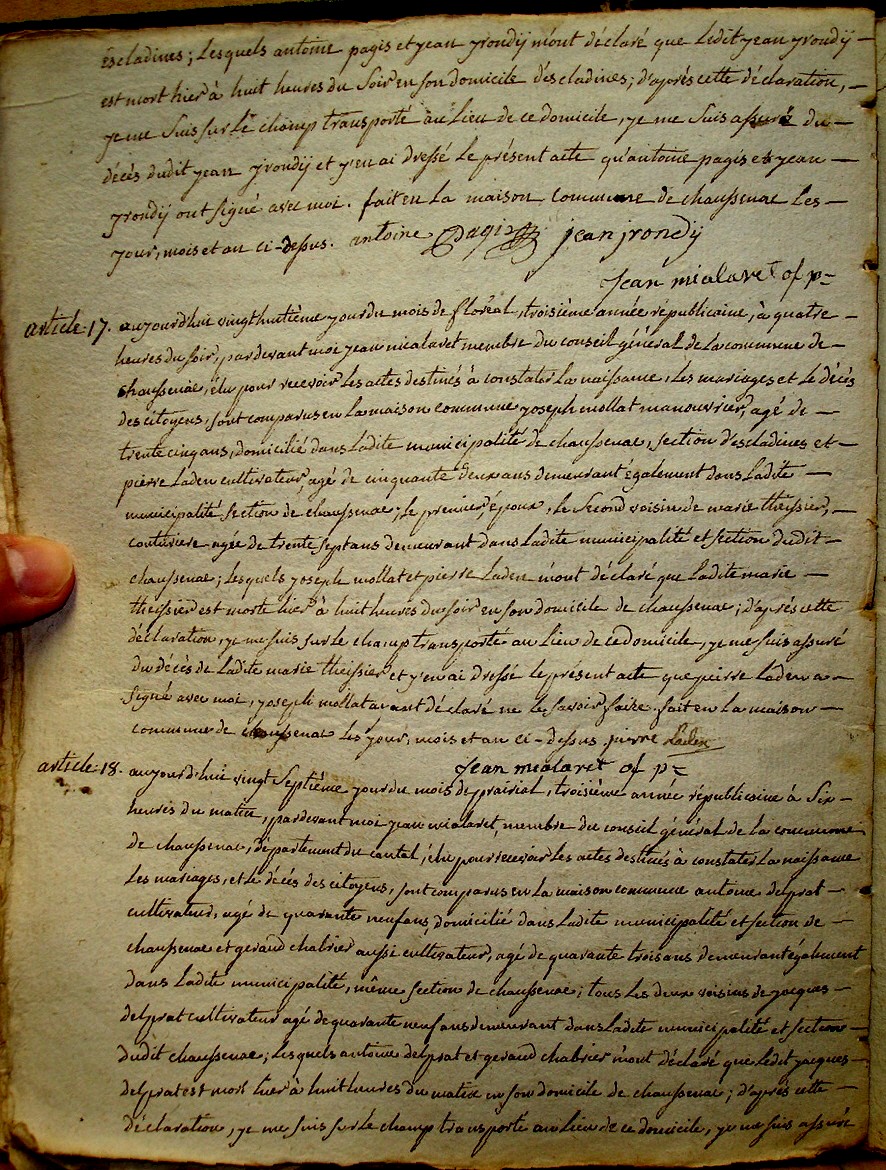 Escladines; Lesquels antoine pagis et jean jrondij m'ont déclaré que Ledit jean jrondij —
est mort hier à huit heures du Soir en son domicile d'Escladines; d'après cette déclaration, —
je me Suis sur Le champ transporté au Lieu de ce domicile, je me Suis assuré du —
décès dudit jean jrondij et j'en ai dressé Le présent acte qu'antoine pagis et jean —
jrondij ont Signé avec moi. fait en La maison Commune de chaussenac Les —
jour, mois et an ci-dessus. antoine Pagis jean jrondij
Jean mialaret of p=
article 17. aujourd'hui vingt huitième jour du mois de floréal, troisième année républicaine, à quatre
heures du soir, pardevant moi jean mialaret, membre du conseil général de La commune de —
chaussenac, élu pour recevoir Les actes destinés à constater La naissance, Les mariages et Le décès
des citoyens, sont comparus en La maison commune joseph mollat manouvrier, agé de —
trente cinq ans, domicilié dans Ladite municipalité de chaussenac, section d'escladines et —
pierre Laden cultivateur, agé de cinquante deux ans demeurant également dans Ladite —
municipalité Section de chaussenac; Le premier époux, Le Second voisin de marie theissier, —
couturiere agée de trente Sept ans demeurant dans Ladite municipalité et Section dudit —
chaussenac; Lesquels joseph mollat et pierre Laden m'ont déclaré que Ladite marie —
theissier est morte hier à huit heures du Soir en son domicile de chaussenac; d'après cette
déclaration, je me suis sur Le champ transporté au Lieu de ce domicile, je me suis assuré
du décès de Ladite marie theissier et j'en ai dressé Le présent acte que pierre Laden a —
Signé avec moi, joseph mollat ayant déclaré ne Le Savoir faire. fait en La maison —
commune de chaussenac Les jour, mois et an ci-dessus. pierre Laden
Jean mialaret of p=
article 18. aujourd'hui vingt Septième jour du mois de prairial, troisième année républicaine à Six —
heures du matin, pardevant moi jean mialaret, membre du conseil général de La commune
de chaussenac, département du cantal, élu pour recevoir Les actes destinés à constater La naissance
Les mariages, et Le décès des citoyens, sont comparus en La maison commune antoine delprat —
cultivateur, agé de quarante neuf ans, domicilié dans Ladite municipalité et Section de —
chaussenac et geraud chabrier aussi cultivateur, agé de quarante trois ans demeurant également
dans Ladite municipalité, même Section de chaussenac; tous Les deux voisins de jacques —
delprat cultivateur agé de quarante neuf ans demeurant dans Ladite municipalité et Section —
dudit chaussenac; Lesquels antoine delprat et geraud chabrier m'ont déclaré que Ledit jacques —
delprat est mort hier à huit heures du matin en son domicile de chaussenac; d'après cette —
déclaration, je me suis sur Le champ transporté au Lieu de ce domicile, je me suis assuré